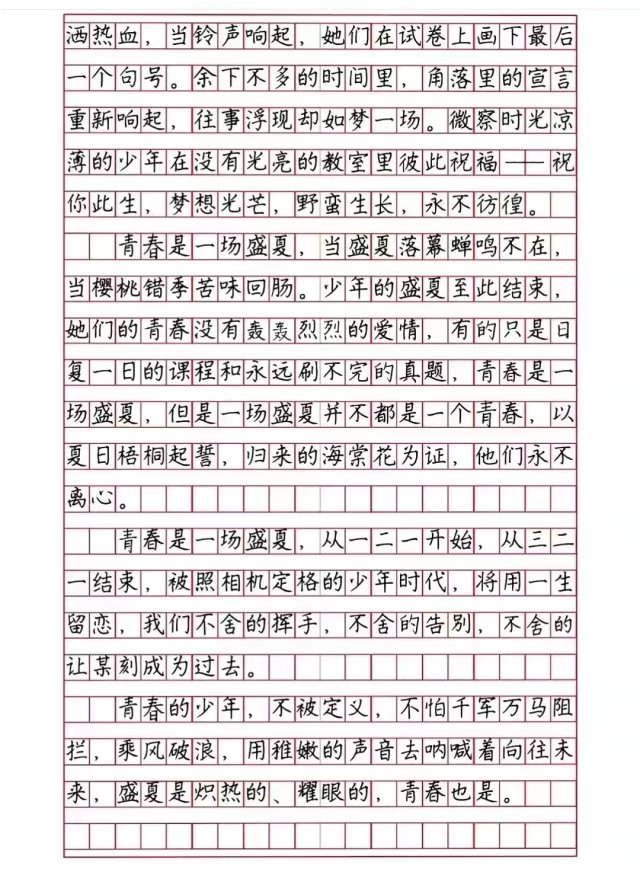 洒热血，当铃声响起，她们在试卷上画下最后
一个句号。余下不多的时间里，角落里的宣言
重新响起，往事浮现却如梦一场。微察时光凉
薄的少年在没有光亮的教室里彼此祝福——祝
你此生，梦想光芒，野蛮生长，永不彷徨。
青春是一场盛夏，当盛夏落幕蝉鸣不在，
当樱桃错季苦味回肠。少年的盛夏至此结束，
她们的青春没有轰轰烈烈的爱情，有的只是日
复一日的课程和永远刷不完的真题，青春是一
场盛夏，但是一场盛夏并不都是一个青春，以
夏日梧桐起誓，归来的海棠花为证，他们永不
离心。
青春是一场盛夏，从一二一开始，从三二
一结束，被照相机定格的少年时代，将用一生
留恋，我们不舍的挥手，不舍的告别，不舍的
让某刻成为过去。
青春的少年，不被定义，不怕千军万马阻
拦，乘风破浪，用稚嫩的声音去呐喊着向往未
来，盛夏是炽热的、耀眼的，青春也是。